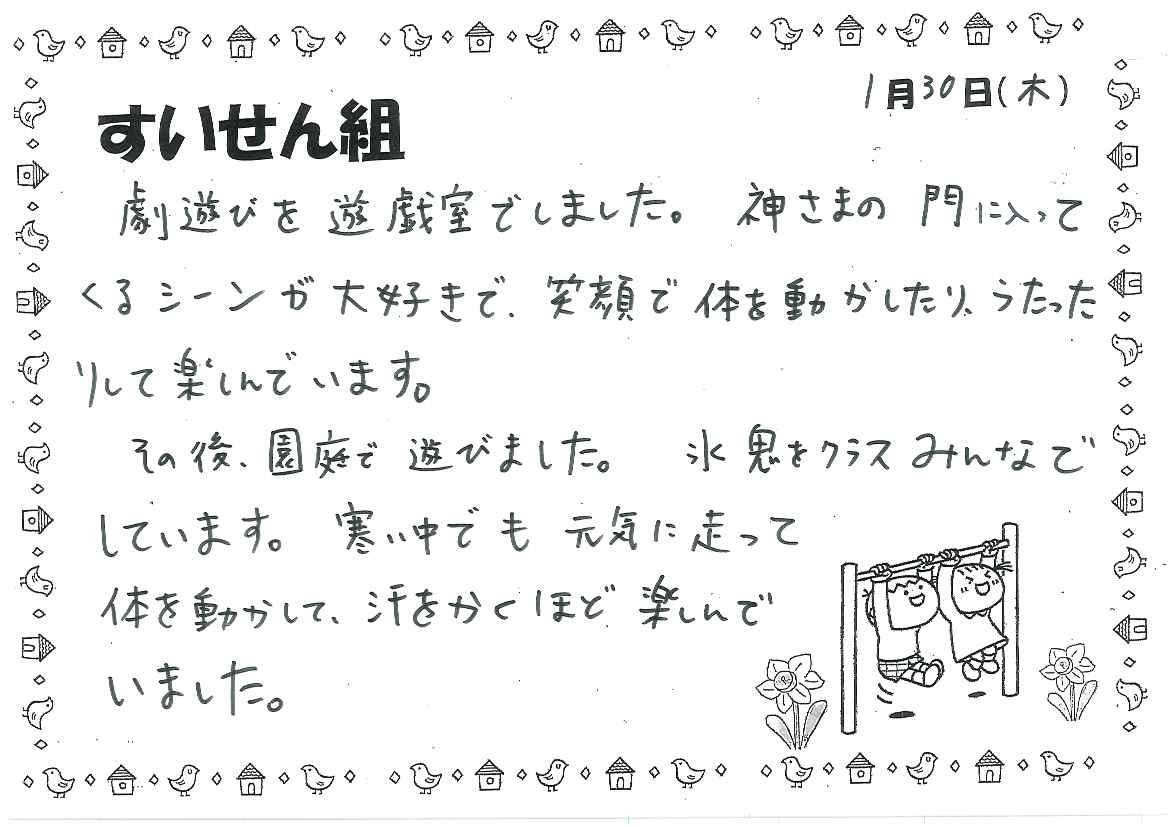 1月30日(木)
すいせん組
劇遊びを遊戯室でしました。 神さまの門に入って
くるシーンが大好きで、笑顔で体を動かしたり、うたった
りして楽しんでいます。
その後、園庭で遊びました。 氷鬼をクラスみんなで
しています。 寒い中でも元気に走って
体を動かして、汗をかくほど楽しんで
いました。